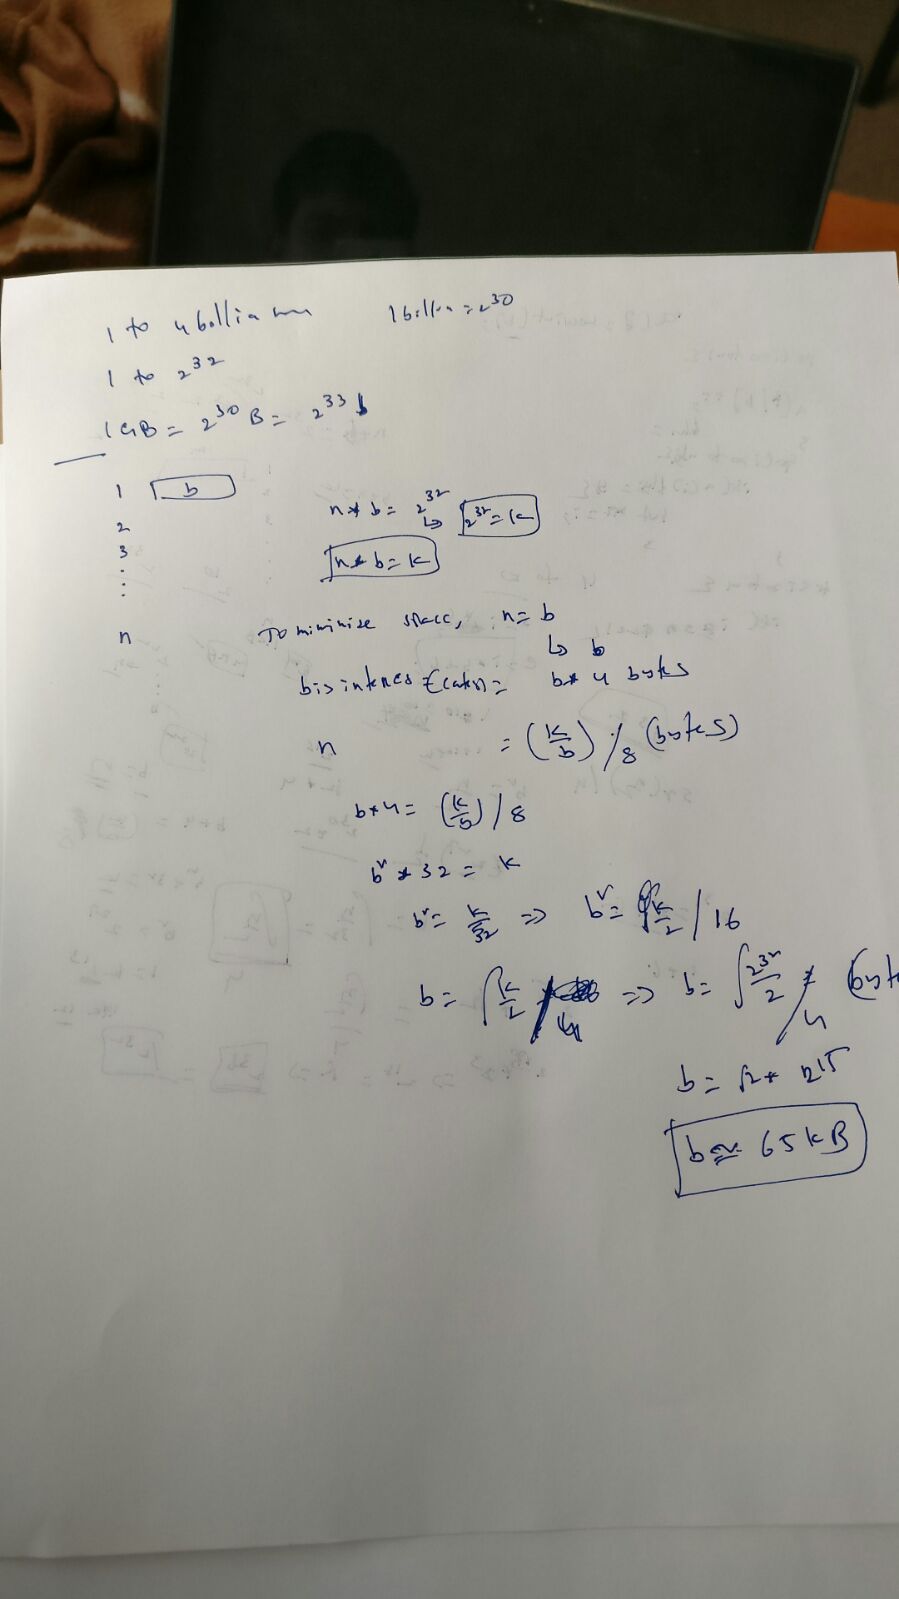 1 to 4 bollian 1 billn = 2^30
1 to 2^32
1GB = 2^30 B = 2^33 b
1 b
2 n * b = 2^32 ↳ 2^32 = k
3 n * b = k
:
n To minimize space, n = b
↳ b
b is integes = b * 4 bytes
n = (k/b) / 8 (bytes)
b * 4 = (k/b) / 8
b² * 32 = k
b² = k/32 => b² = k/2 / 16
b = √k/2 / 4 => b = √2^32/2 / 4
b = √2 * 2^15
b ≈ 65 kB